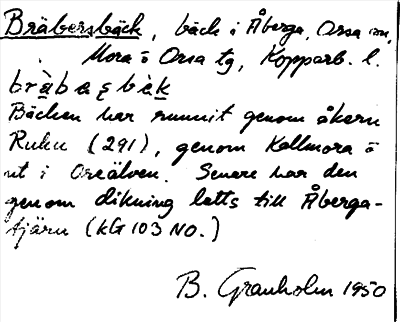 Bräbersbäck, bäck i Åberga, Orsa sn,
Mora o Orsa tg, Kopparb. l.
bràbæʂbèk
Bäcken har runnit genom åkern
Ruku (291), genom Kallmora o
ut i Oreälven. Senare har den
genom dikning letts till Åberga-
tjärn (KG 103 NO.)
B. Granholm 1950